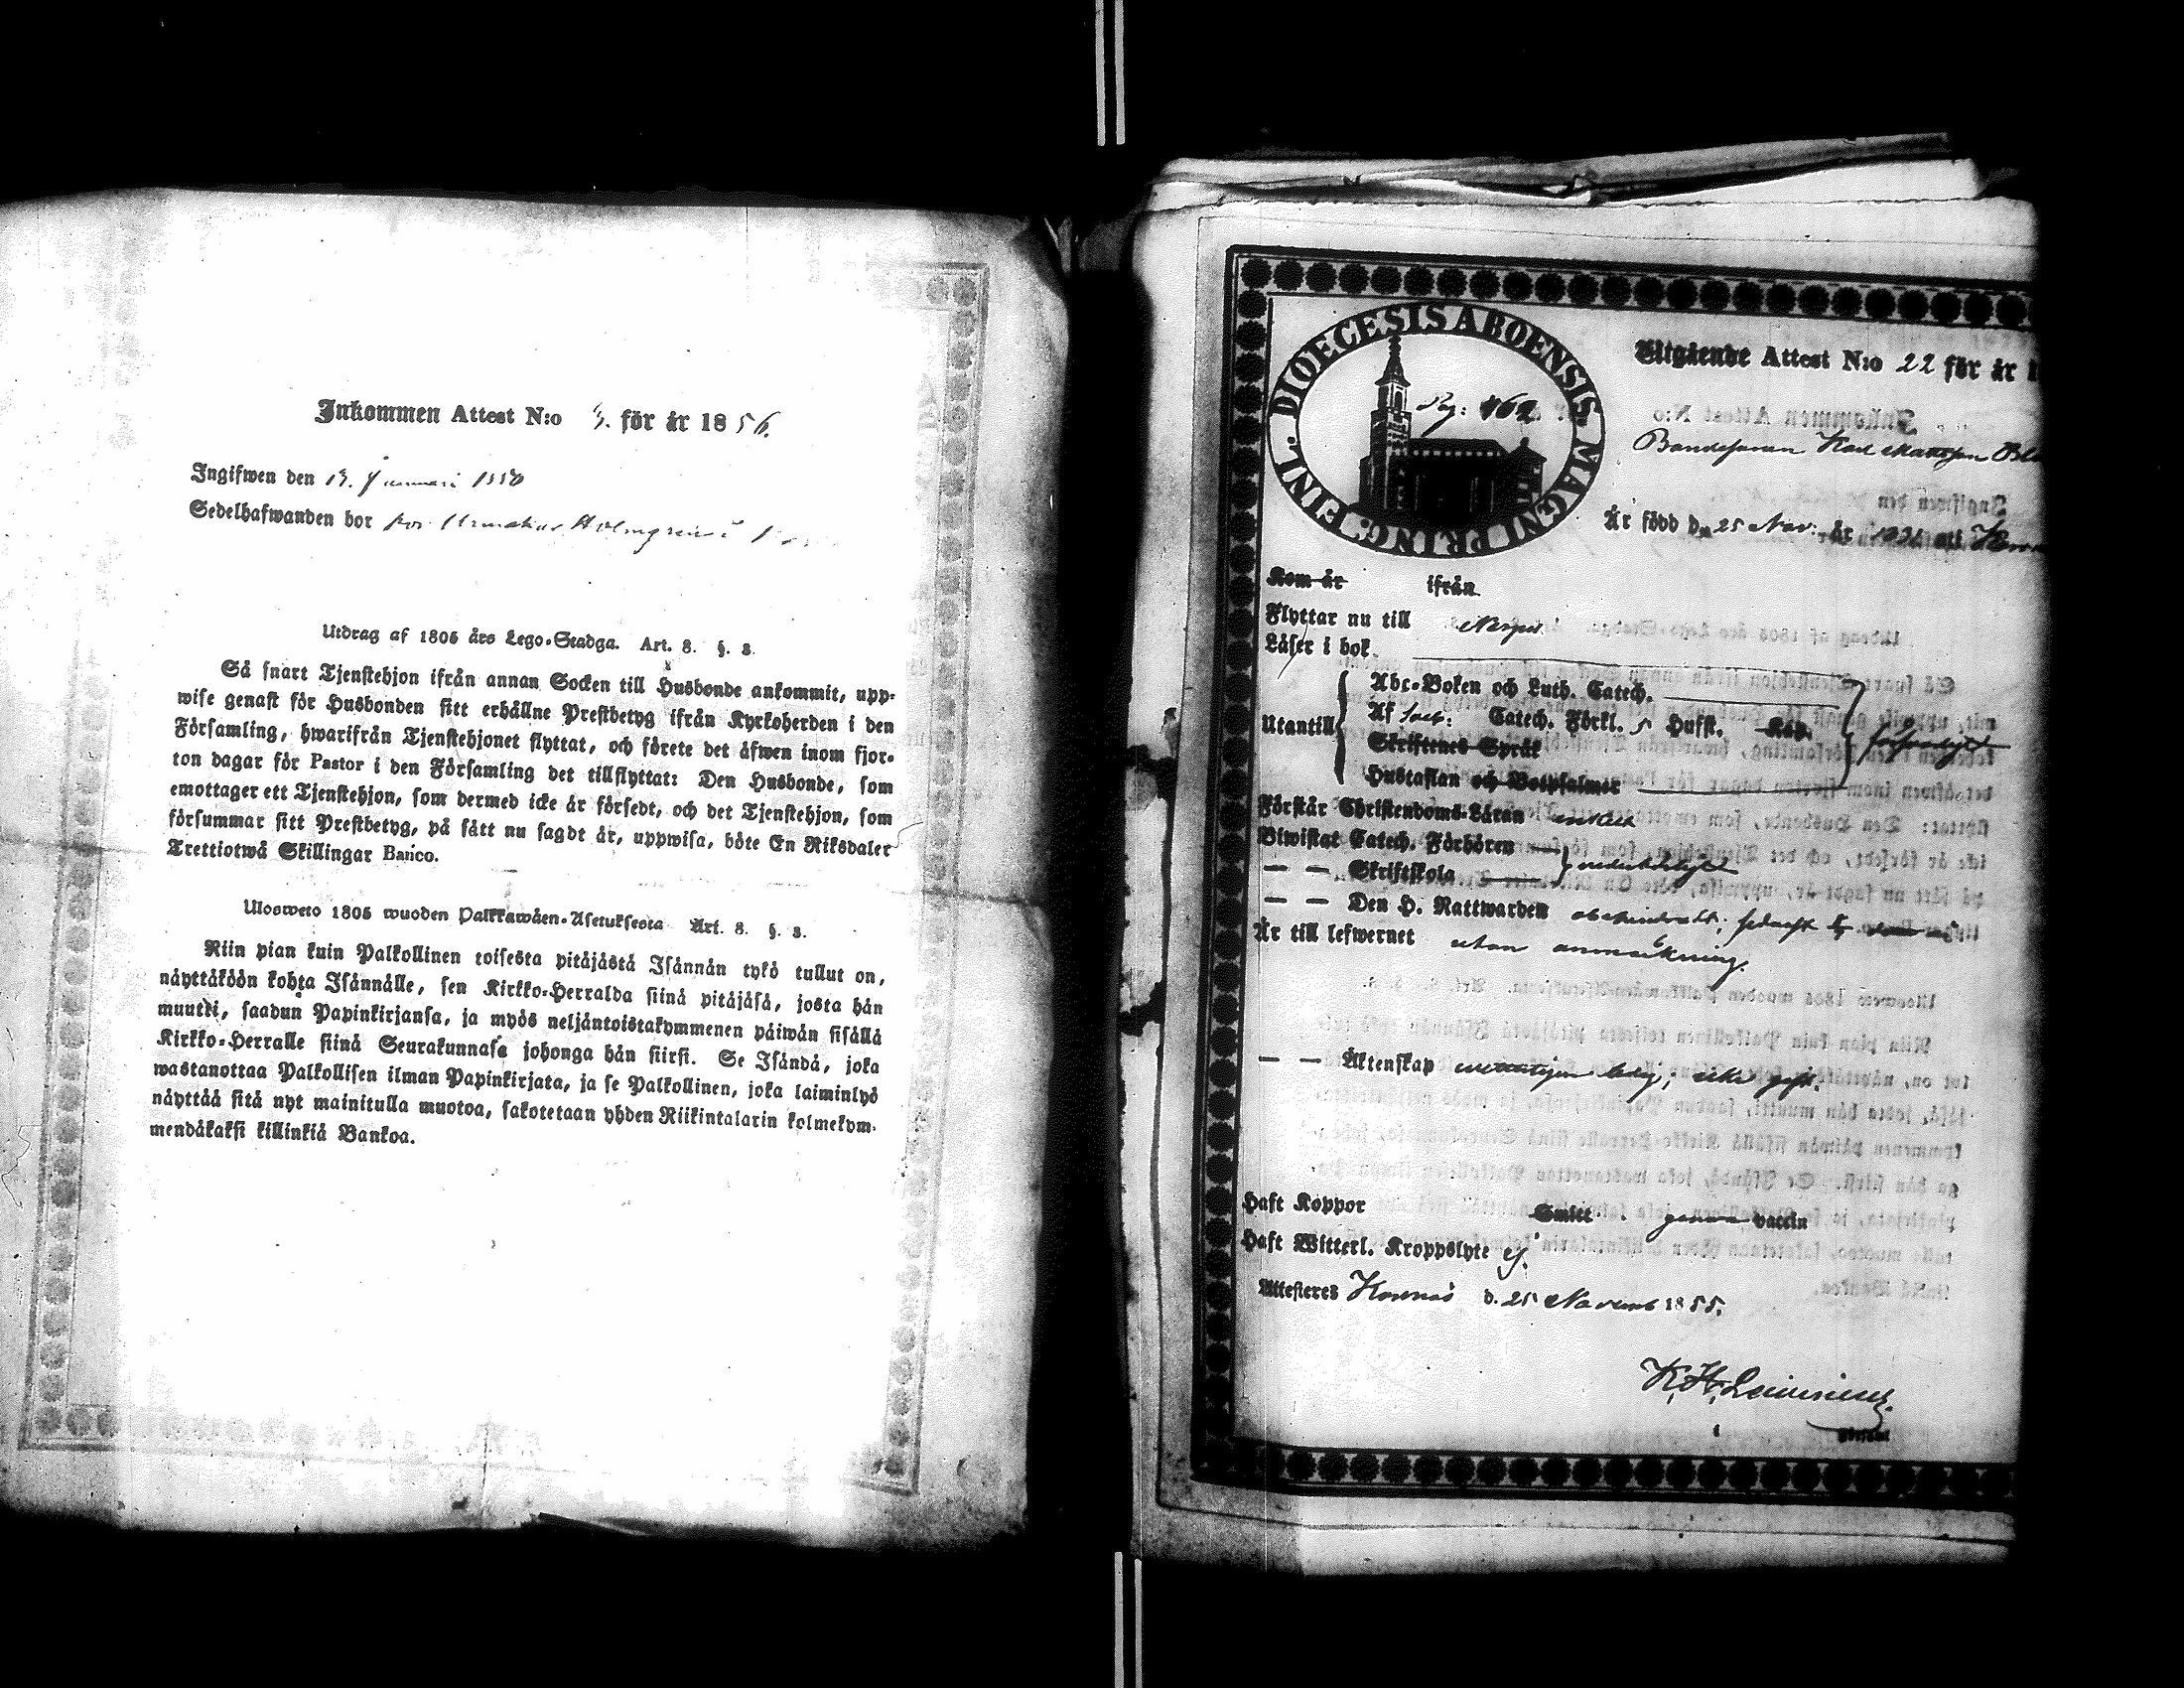 Inkommen Attest N:o 3. för år 1856.
Ingifwen den 13. Januari 1856
Sedelhafwanden bor hos Urmakar Holmgren i
Utdrag af 1805 års Lego-Stadga. Art. 8. §. 3.
Så snart Tjenstehjon ifrån annan Socken till Husbonde ankommit, upp-
wise genast för Husbonden sitt erhållne Prestbetyg ifrån Kyrkoherden i den
Församling, hwarifrån Tjenstehjonet flyttat, och förete det äfwen inom fjor-
ton dagar för Pastor i den Församling det tillflyttat: Den Husbonde, som
emottager ett Tjenstehjon, som dermed icke är försedt, och det Tjenstehjon, som
försummar sitt Prestbetyg, på sätt nu sagdt är, uppwisa, böte En Riksdaler
Trettiotwå Skillingar Banco.
Ulosweto 1805 wuoden Palkkawäen-Asetuksesta Art. 8. §. 3.
Niin pian kuin Palkollinen toisesta pitäjästä Isännän tykö tullut on,
näyttäköön kohta Isännälle, sen Kirkko-Herralda siinä pitäjäsä, josta hän
muutti, saadun Papinkirjansa, ja myös neljäntoistakymmenen päiwän sisällä
Kirkko-Herralle siinä Seurakunnasa johonga hän siirsi. Se Isändä, joka
wastanottaa Palkollisen ilman Papinkirjata, ja se Palkollinen, joka laiminlyö
näyttää sitä nyt mainitulla muotoa, sakotetaan yhden Riikintalarin kolmekym-
mendäkaksi killinkiä Bankoa.
DIOECESIS ABOENSIS MAGNI PRINC. FINL.
Pag: 162
Utgående Attest N:o 22 för år 1
Bondesonen Karl Mattsson
Är född d. 25 Nov: år
Kom år ifrån
Flyttar nu till
Läser i bok
Utantill
Abc-Boken och Luth. Catech.
Af Catech. Förkl. Hufst. Kap.
Skriftenes Språk
Hustaflan och Botpsalmer
försvarligt
Förstår Christendoms-Läran enkelt
Biwistat Catech. Förhören
— — Skriftskola
— — Den H. Nattwarden
Är till lefwernet utan anmärkning.
— — Äktenskap ledig,
Haft Koppor Smitt genom vaccin
Haft Witterl. Kroppslyte ej.
Attesteres Honnäs d. 25 Novemb 1855.
K. H.